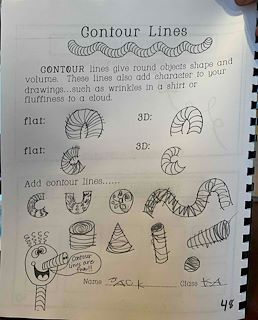 Contour Lines
CONTOUR lines give round objects shape and
volume. These lines also add character to your
drawings...such as wrinkles in a shirt or
fluffiness to a cloud.
flat: 3D:
flat: 3D:
Add contour lines......
Contour
lines are
fun!!
Name JACK Class
48